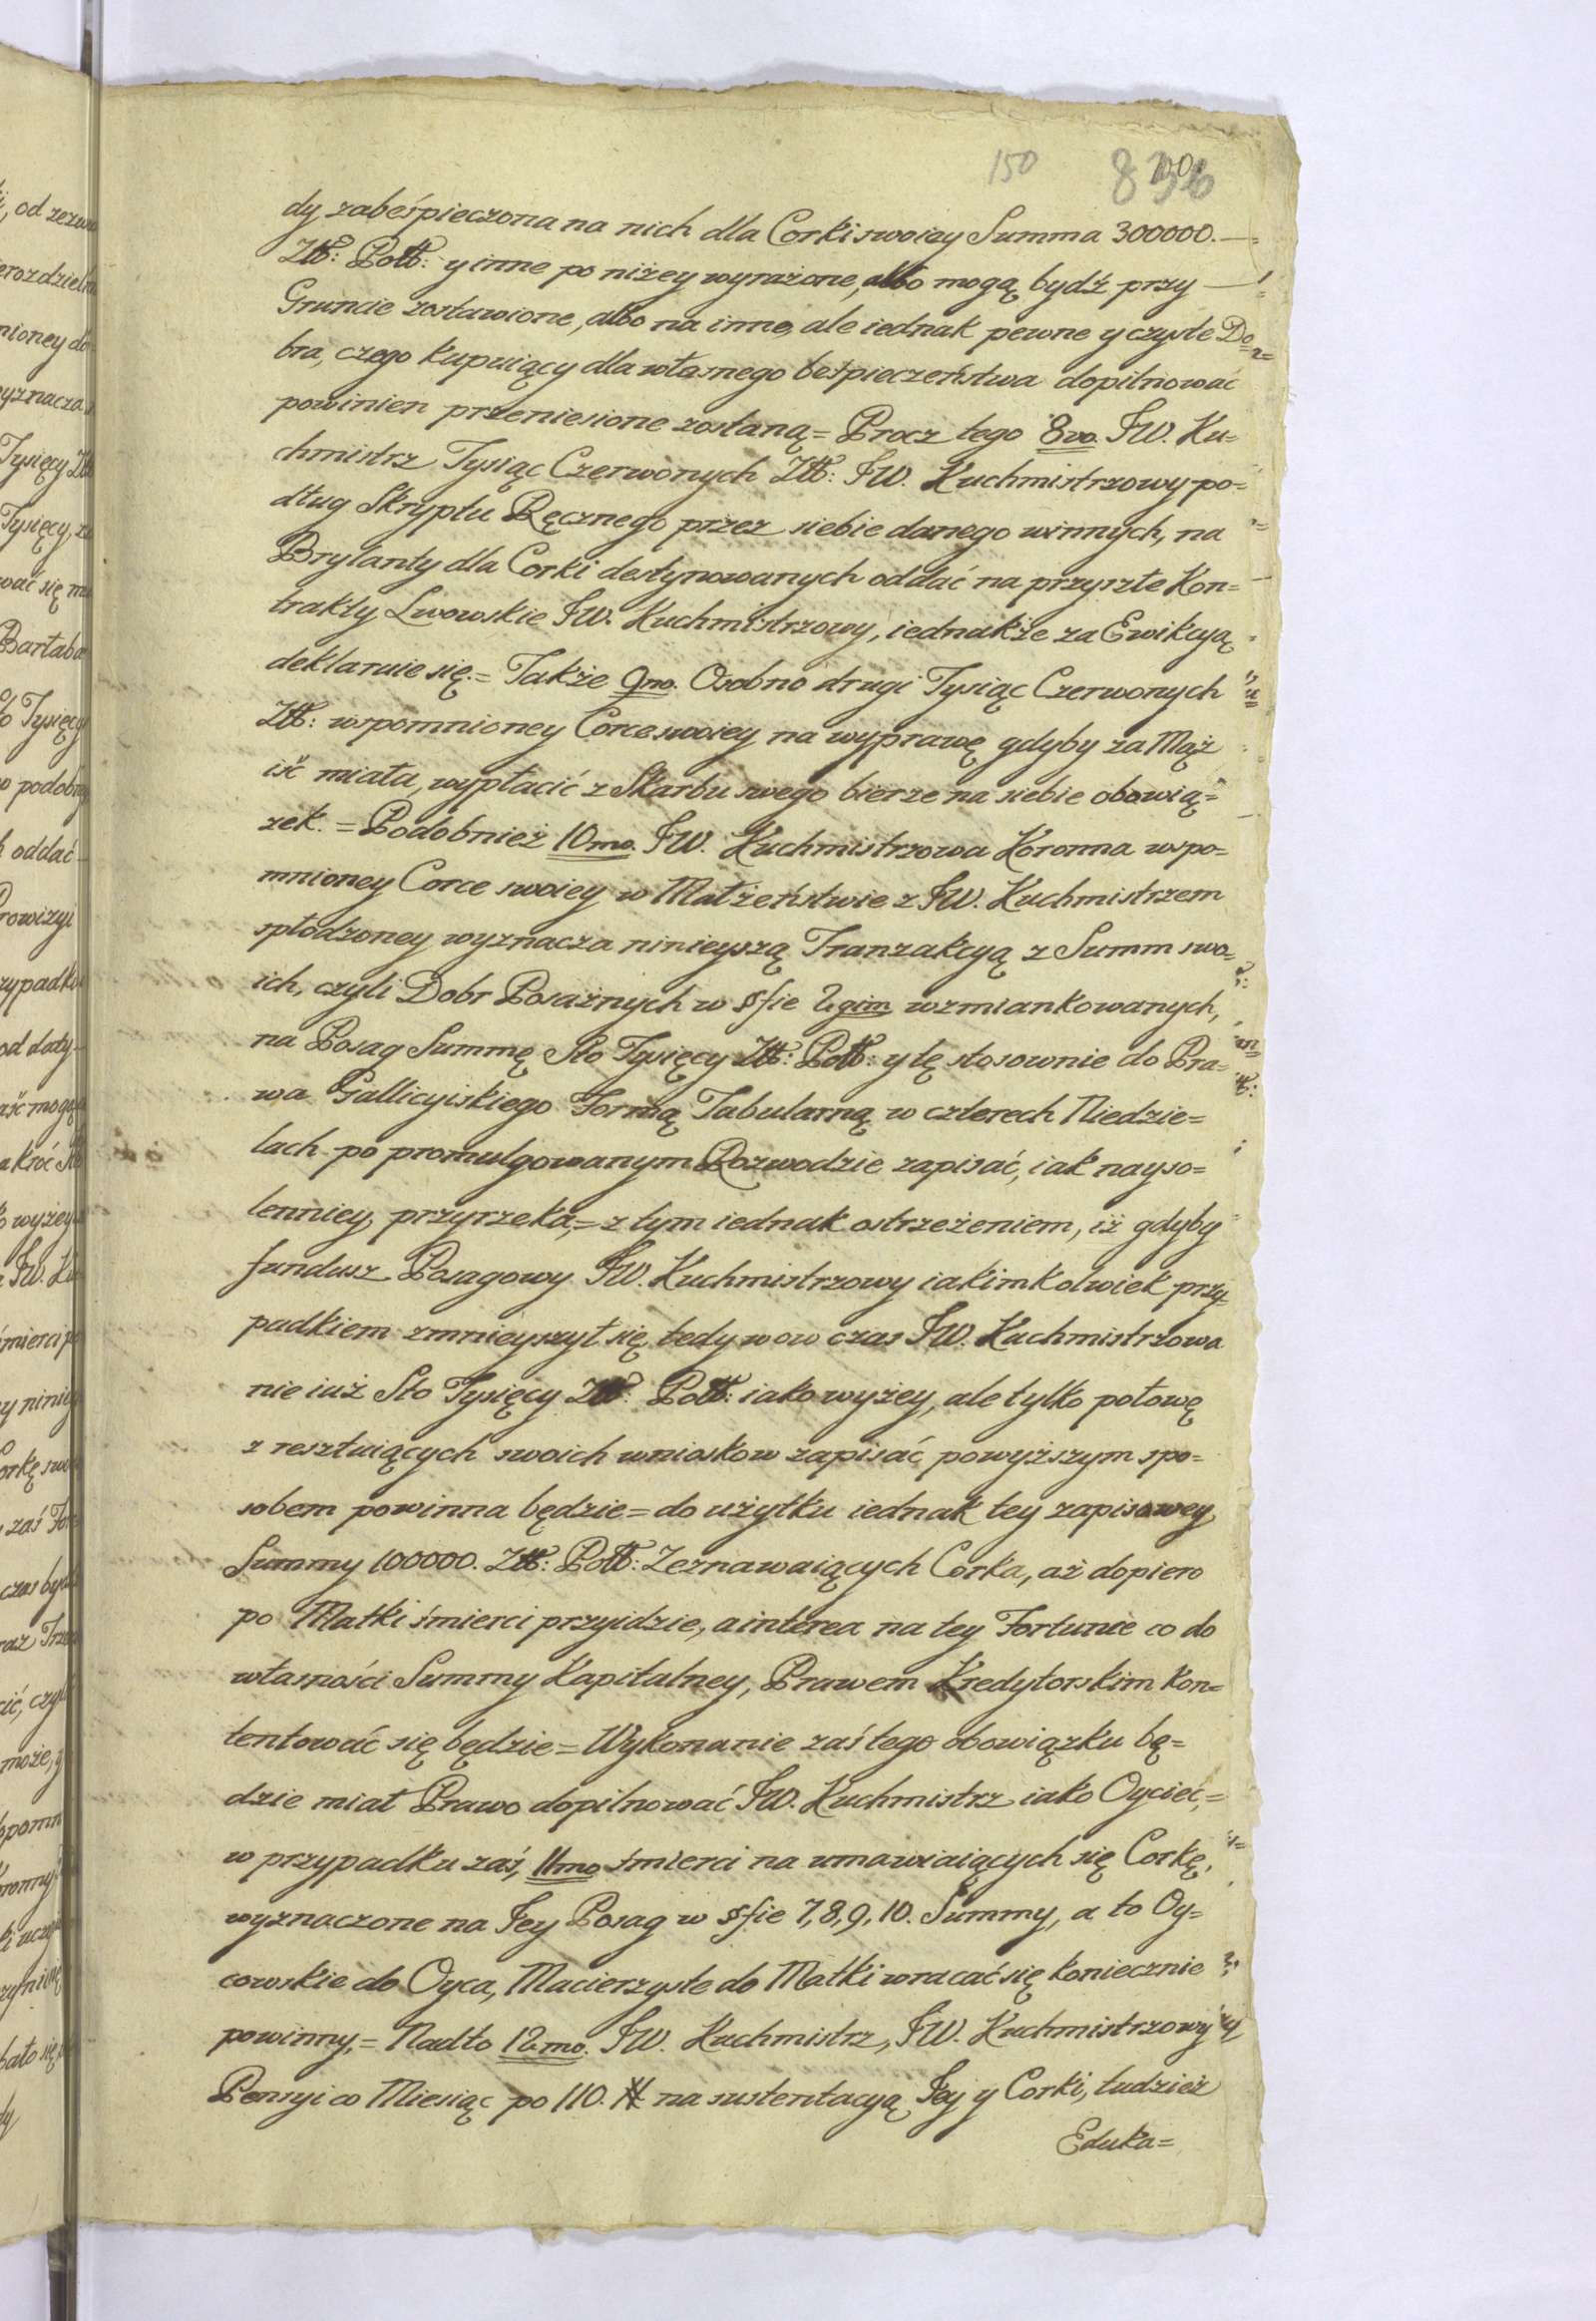 150 836
dy zabeśpieczona na nich dla Corki swoiey Summa 300000.
Złł: Poll: y inne po niżey wyrażone, albo mogą bydź przy
Gruncie zostawione, albo na inne, ale iednak pewne y czyste Do=
bra, czego kupuiący dla własnego beśpieczeństwa dopilnować
powinien przeniesione zostaną = Procz tego 8vo. JW. Ku=
chmistrz Tysiąc Czerwonych Złł: JW. Kuchmistrzowy po=
dług Skryptu Ręcznego przez siebie danego winnych, na
Brylanty dla Corki destynowanych oddać na przyszłe Kon=
trakty Lwowskie JW. Kuchmistrzowy, iednakże za Ewikcyą
deklaruie się. = Także 9no. Osobno drugi Tysiąc Czerwonych
Złł: wspomnioney Corce swoiey na wyprawę gdyby za Mąż
iść miała, wypłacić z Skarbu swego bierze na siebie obowią=
zek. = Podobnież 10mo. JW. Kuchmistrzowa Koronna wspo=
mnioney Corce swoiey w Małżeństwie z JW. Kuchmistrzem
spłodzoney wyznacza ninieyszą Tranzakcyą z Summ swo=
ich, czyli Dobr Posażnych w §fie 2gim wzmiankowanych,
na Posag Summę Sto Tysięcy Złł: Poll: y tę stosownie do Pra=
wa Gallicyiskiego Formą Tabularną w czterech Niedzie=
lach po promulgowanym Rozwodzie zapisać, iak nayso=
lenniey przyrzeka, = z tym iednak ostrzeżeniem, iż gdyby
fundusz Posagowy JW. Kuchmistrzowy iakimkolwiek przy=
padkiem zmnieyszył się, tedy w ow czas JW. Kuchmistrzowa
nie iuż Sto Tysięcy Złł: Poll: iako wyżey, ale tylko połowę
z resztuiących swoich wniosków zapisać powyższym spo=
sobem powinna będzie = do użytku iednak tey zapisowey
Summy 100000. Złł: Poll: Zeznawaiących Corka, aż dopiero
po Matki śmierci przyidzie, a interea na tey Fortunie co do
własności Summy Kapitalney, Prawem Kredytorskim kon=
tentować się będzie = Wykonanie zaś tego obowiązku bę=
dzie miał Prawo dopilnować JW. Kuchmistrz iako Oyciec, =
w przypadku zaś, 11mo śmierci na umawiaiących się Corkę,
wyznaczone na Jey Posag w §fie 7, 8, 9, 10. Summy, a to Oy=
cowskie do Oyca, Macierzyste do Matki wracać się koniecznie
powinny, = Nadto 12mo. JW. Kuchmistrz, JW. Kuchmistrzowy
Pensyi co Miesiąc po 110. # na sustentacyą Jey y Corki, tudzież
Eduka=